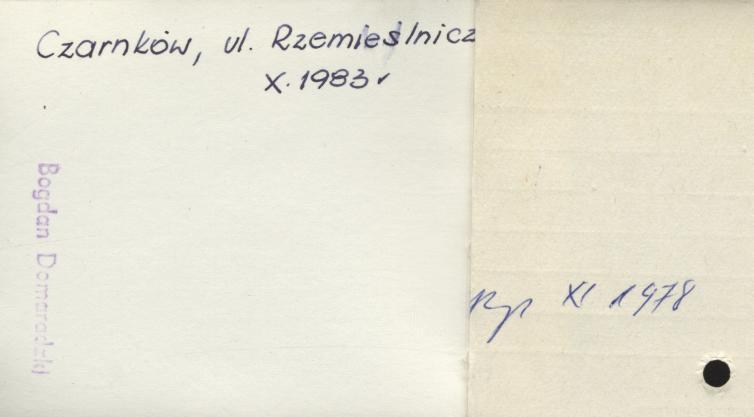 Czarnków, ul. Rzemieślnicz
X. 1983 r
Bogdan Domaradzki
XI 1978